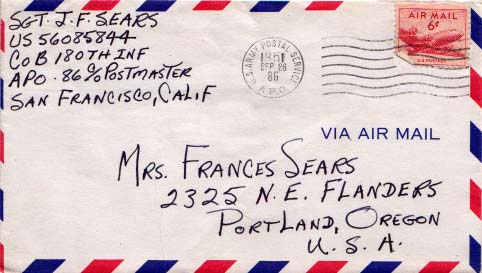 SGT. J. F. SEARS
US 56085844
CO B 180TH INF
APO. 86 % POSTMASTER
SAN FRANCISCO, CALIF
U.S. ARMY POSTAL SERVICE
1951
SEP 26
86
A.P.O.
AIR MAIL
6¢
U.S. POSTAGE
VIA AIR MAIL
MRS. FRANCES SEARS
2325 N.E. FLANDERS
PORTLAND, OREGON
U.S.A.